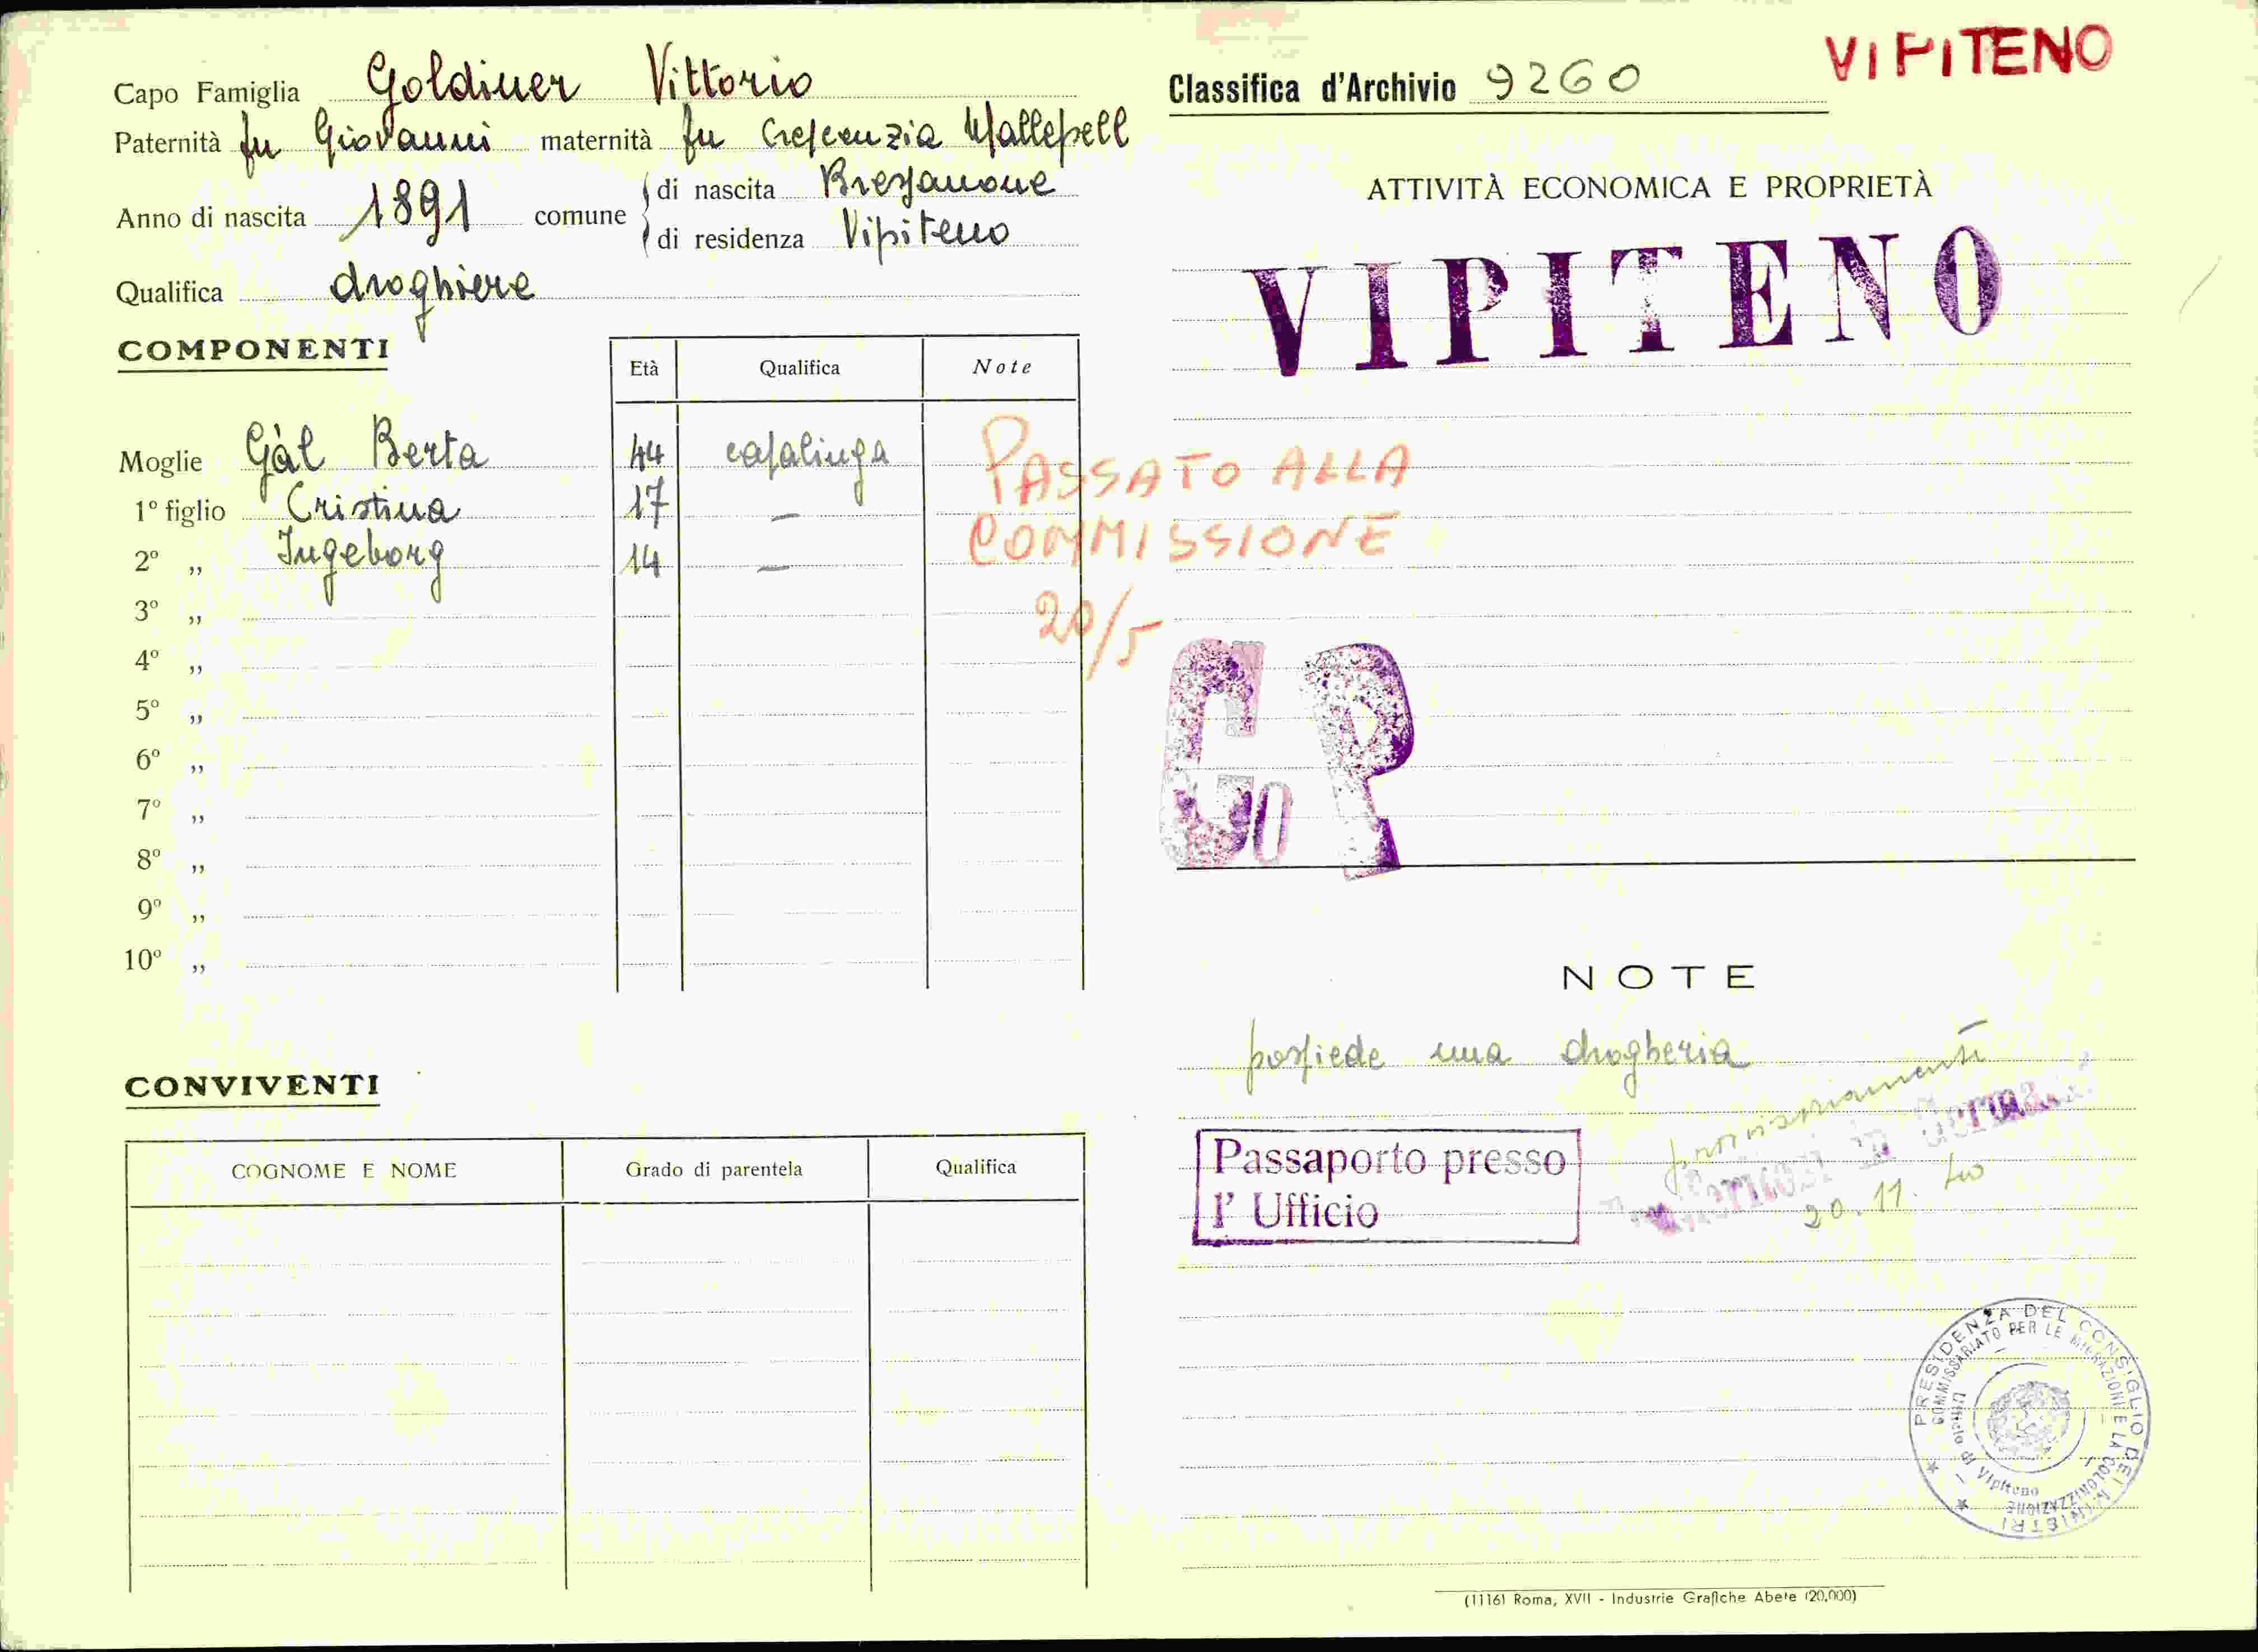 Capo Famiglia Goldiner Vittorio
Paternità fu Giovanni maternità fu Crescenzia
Anno di nascita 1891 comune di nascita Bressanone
di residenza Vipiteno
Qualifica droghiere
COMPONENTI
Età Qualifica Note
Moglie Gàl Berta 44 casalinga
1º figlio Cristina 17 —
2º „ Ingeborg 14 —
3º „
4º „
5º „
6º „
7º „
8º „
9º „
10º „
PASSATO ALLA
COMMISSIONE
20/5
CONVIVENTI
COGNOME E NOME Grado di parentela Qualifica
VIPITENO
Classifica d'Archivio 9260
ATTIVITÀ ECONOMICA E PROPRIETÀ
VIPITENO
NOTE
possiede una drogheria
Passaporto presso
l' Ufficio
20.11.40
PRESIDENZA DEL CONSIGLIO DEI MINISTRI
COMMISSARIATO PER LE MIGRAZIONI E LA COLONIZZAZIONE
Ufficio di Vipiteno
(1116) Roma, XVII - Industrie Grafiche Abete (20,000)